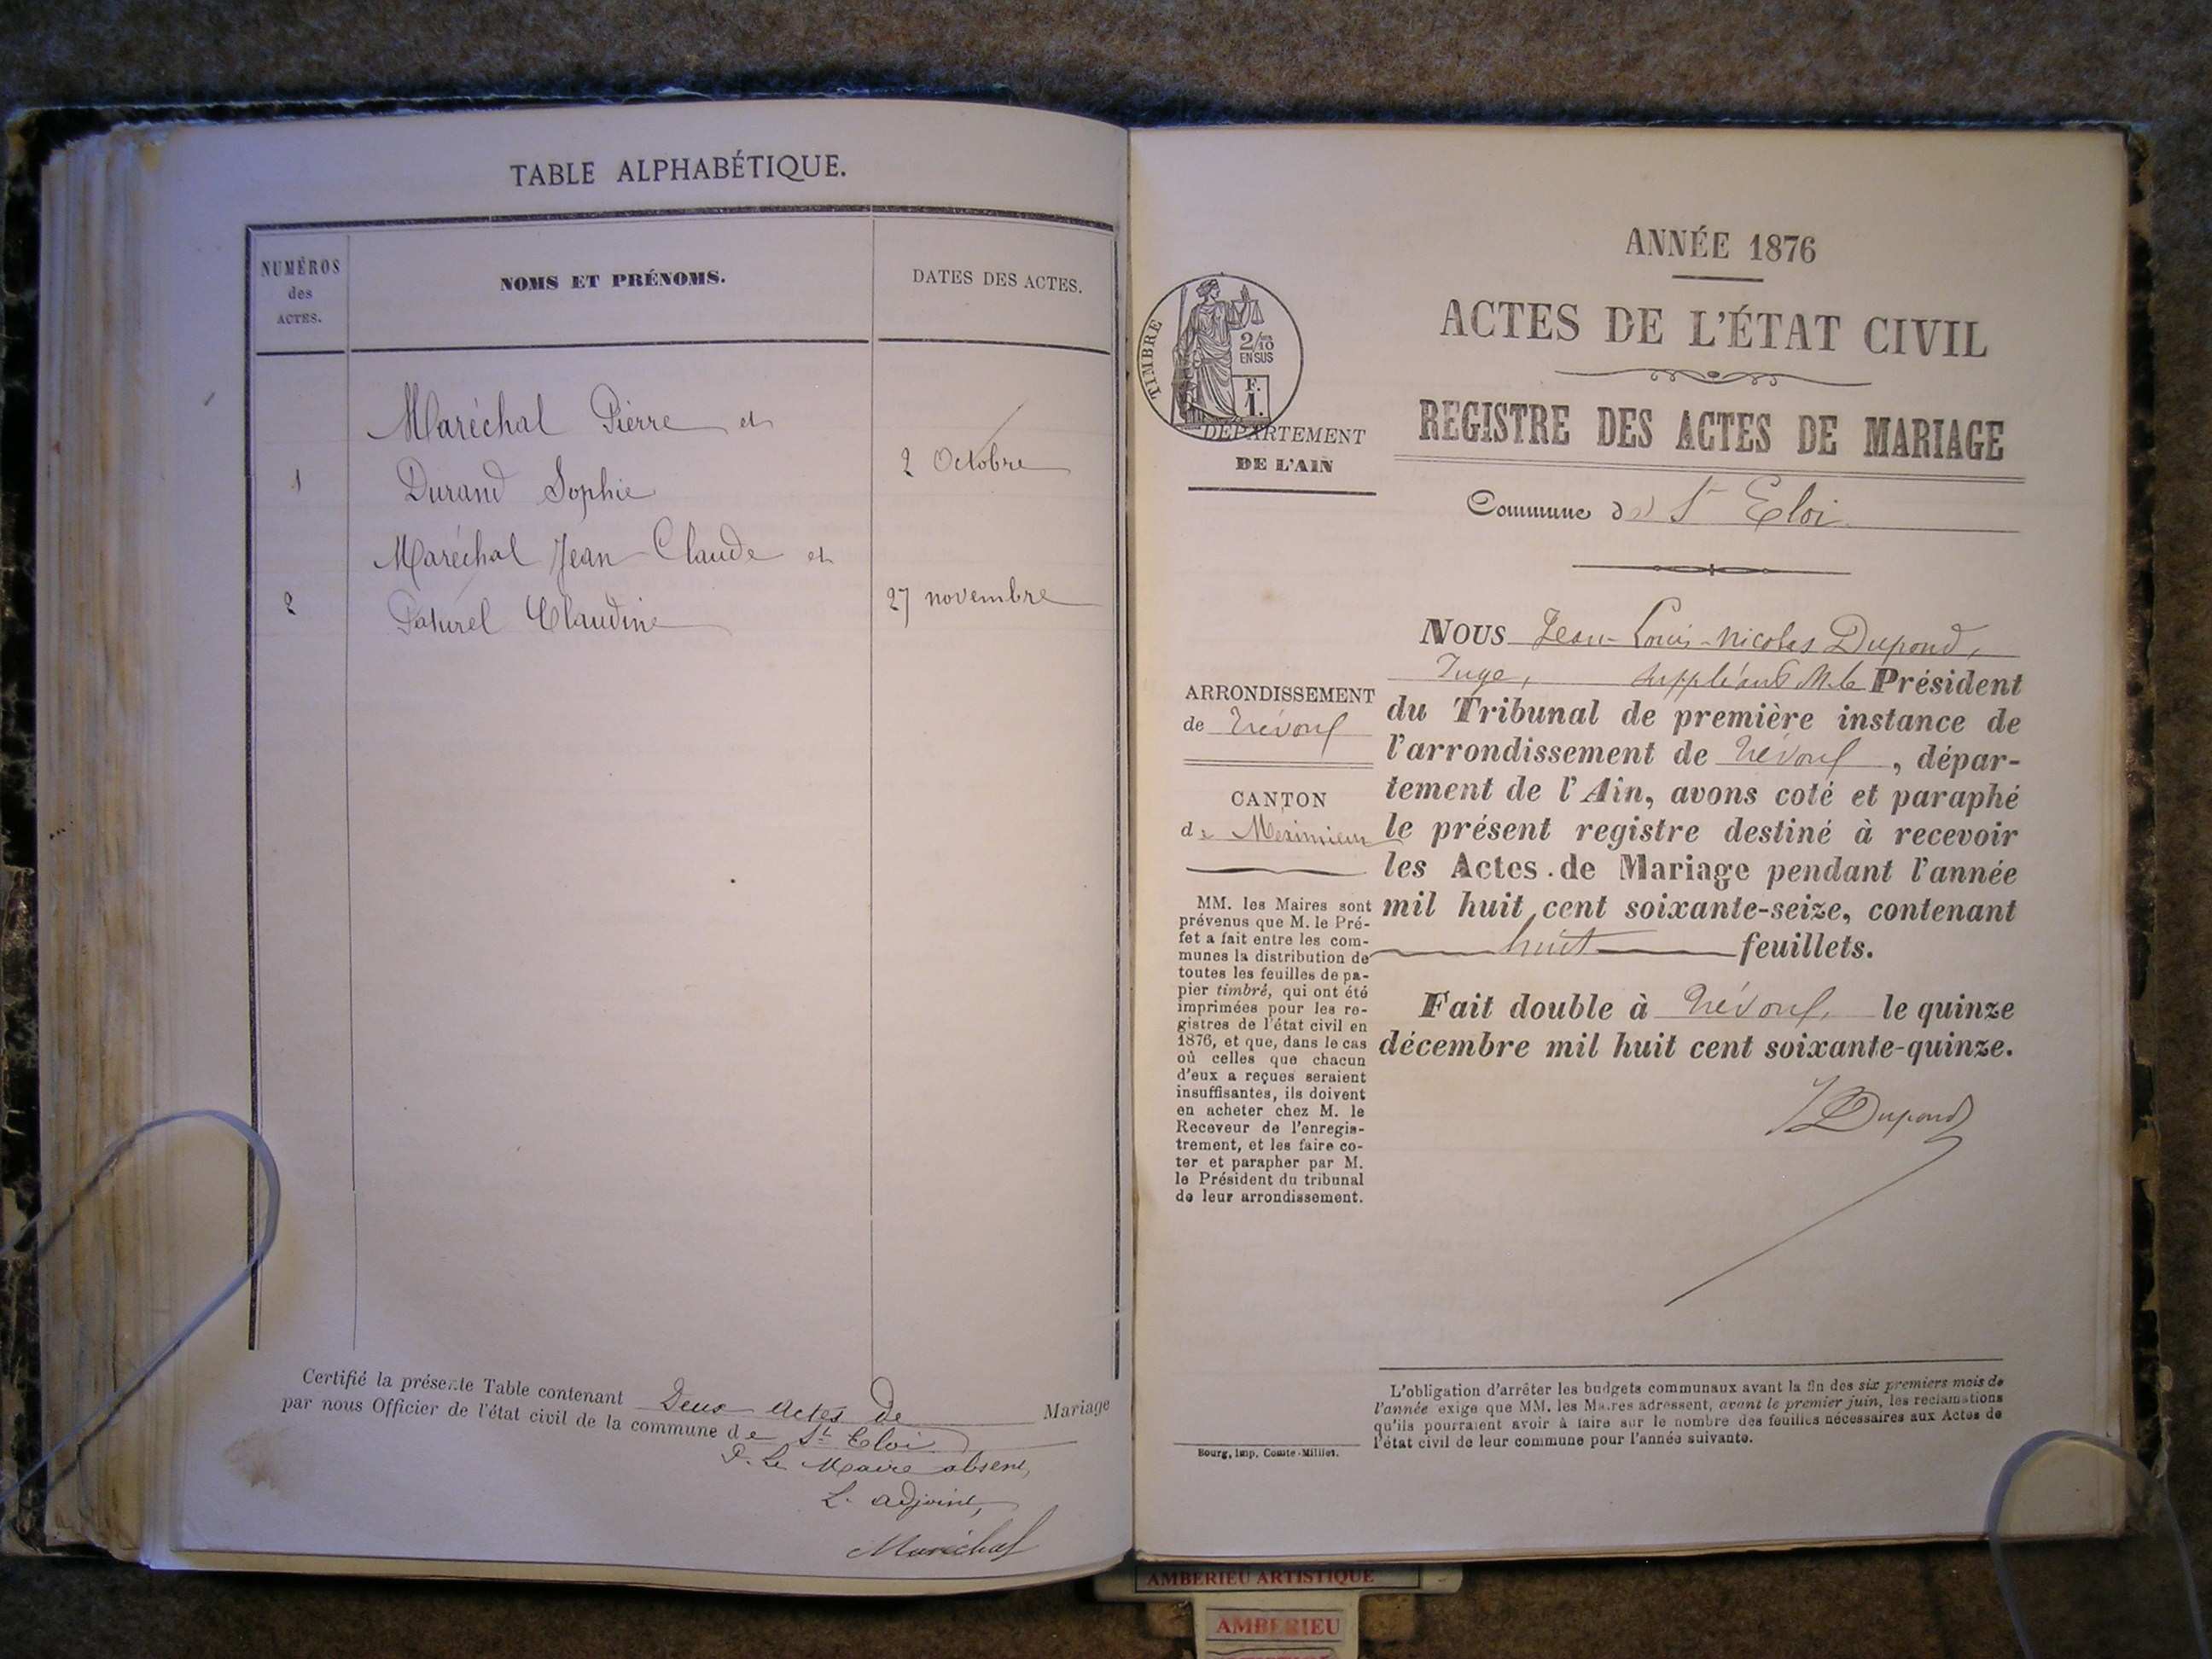 TABLE ALPHABÉTIQUE.
NUMÉROS
des
ACTES.
NOMS ET PRÉNOMS.
DATES DES ACTES.
Maréchal Pierre et
1 Durand Sophie
2 Octobre
Maréchal Jean Claude et
2 Paturel Claudine
27 novembre
Certifié la présente Table contenant Deux actes de Mariage
par nous Officier de l'état civil de la commune de St Eloi
P. Le Maire absent,
L. adjoint,
Maréchal
ANNÉE 1876
ACTES DE L'ÉTAT CIVIL
REGISTRE DES ACTES DE MARIAGE
TIMBRE
2/10
EN SUS
F.
1.
DÉPARTEMENT
DE L'AIN
Commune de St Eloi
ARRONDISSEMENT
de Trévoux
CANTON
de Meximieux
MM. les Maires sont
prévenus que M. le Pré-
fet a fait entre les com-
munes la distribution de
toutes les feuilles de pa-
pier timbré, qui ont été
imprimées pour les re-
gistres de l'état civil en
1876, et que, dans le cas
où celles que chacun
d'eux a reçues seraient
insuffisantes, ils doivent
en acheter chez M. le
Receveur de l'enregis-
trement, et les faire co-
ter et parapher par M.
le Président du tribunal
de leur arrondissement.
NOUS Jean-Louis-Nicolas Dupond,
Juge, suppléant M. le Président
du Tribunal de première instance de
l'arrondissement de Trévoux, dépar-
tement de l'Ain, avons coté et paraphé
le présent registre destiné à recevoir
les Actes de Mariage pendant l'année
mil huit cent soixante-seize, contenant
huit feuillets.
Fait double à Trévoux, le quinze
décembre mil huit cent soixante-quinze.
Dupond
L'obligation d'arrêter les budgets communaux avant la fin des six premiers mois de
l'année exige que MM. les Maires adressent, avant le premier juin, les réclamations
qu'ils pourraient avoir à faire sur le nombre des feuilles nécessaires aux Actes de
l'état civil de leur commune pour l'année suivante.
Bourg, imp. Comte-Milliet.
AMBERIEU ARTISTIQUE
AMBERIEU